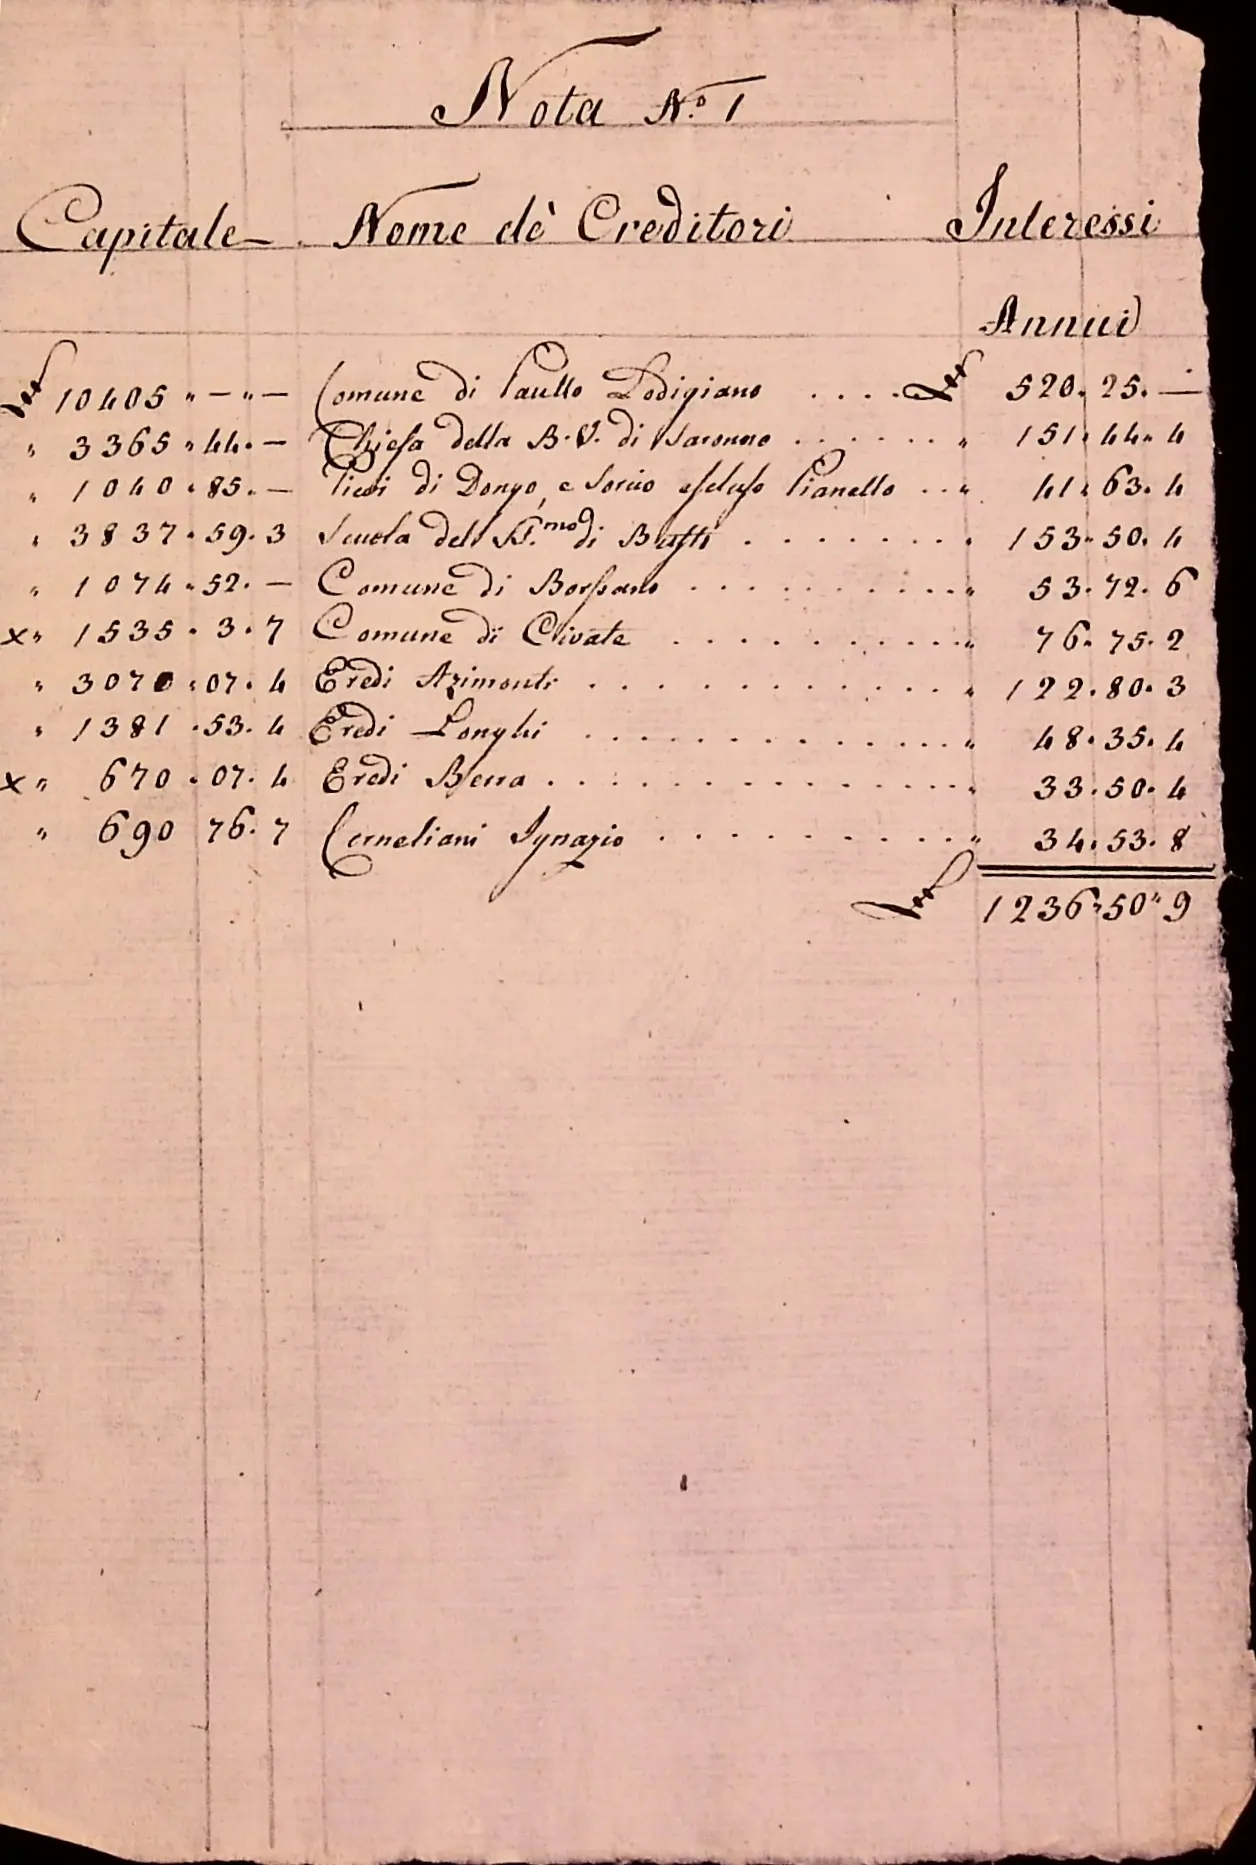 Nota N.º 1
Capitale Nome dè Creditori Interessi
Annui
10405 " — " — Comune di Paullo Lodigiano . . . . 520. 25. —
" 3365 " 44. — Chiesa della B. V. di Saronno . . . . . . . " 151. 44. 4
" 1040 . 85. — Pievi di Dongo, e Sorico escluso Pianello . . " 41. 63. 4
" 3837 . 59. 3 Scuola del SS.mo di Busto . . . . . . . . . 153. 50. 4
" 1074 . 52. — Comune di Borsano . . . . . . . . . . " 53. 72. 6
x " 1535 . 3. 7 Comune di Civate . . . . . . . . . . " 76. 75. 2
" 3070 . 07. 4 Eredi Azimonti . . . . . . . . . . . . " 122. 80. 3
" 1381 . 53. 4 Eredi Longhi . . . . . . . . . . . . . " 48. 35. 4
x " 670 . 07. 4 Eredi Berra . . . . . . . . . . . . . . " 33. 50. 4
" 690 76. 7 Corneliani Ignazio . . . . . . . . . . . " 34. 53. 8
1236. 50 " 9